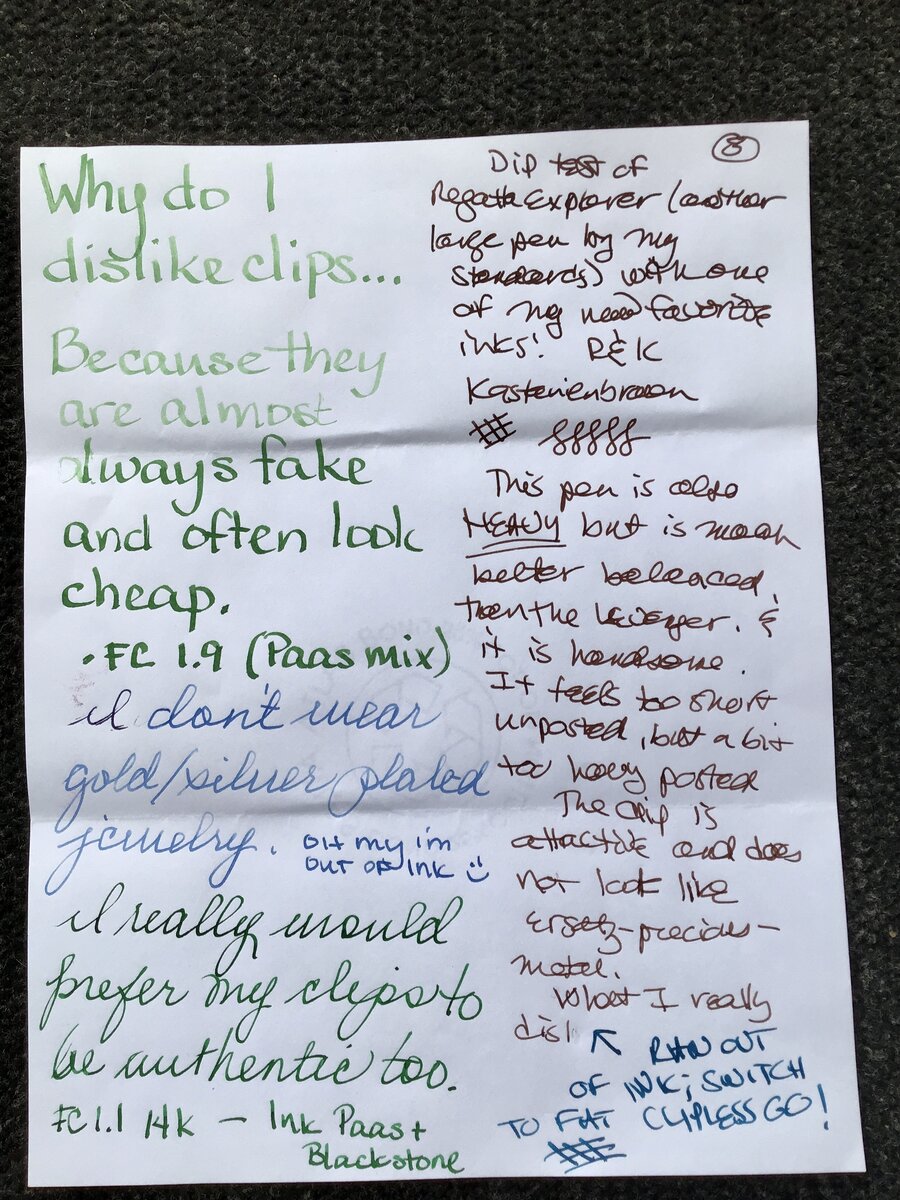 Why do I
dislike clips...
Because they
are almost
always fake
and often look
cheap.
• FC 1.9 (Paas mix)
I don't wear
gold/silver plated
jewelry. OH my i'm
OUT OF INK
I really would
prefer my clips to
be authentic too.
FC 1.1 14k — Ink Paas +
Blackstone
8
Dip test of
Regatta Explorer (another
large pen by my
standards) with one
of my new favorite
inks! R&K
Kastanienbraun
This pen is also
HEAVY but is much
better balanced,
than the . &
it is handsome.
It feels too short
unposted, but a bit
too heavy posted
The clip is
attractive and does
not look like
ersatz-precious-
metal.
What I really
disl
RAN OUT
OF INK; SWITCH
TO FAT CLIPLESS GO!